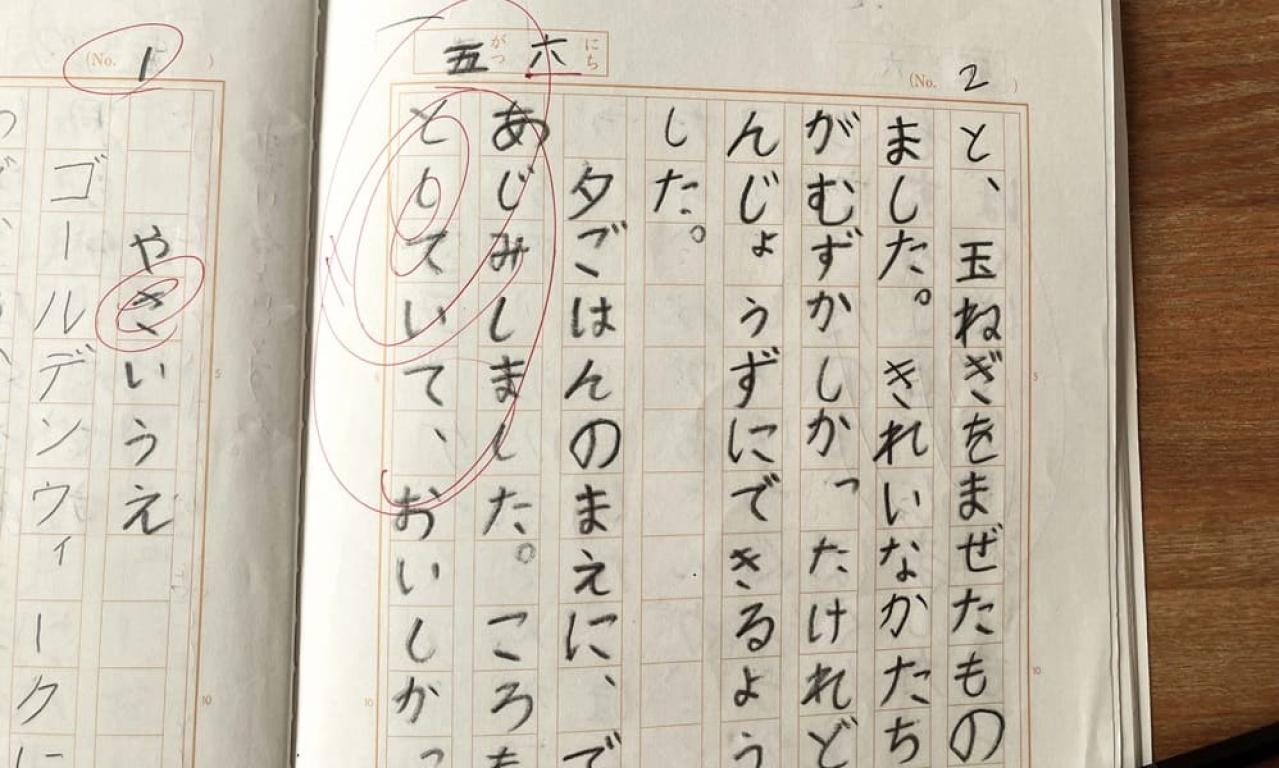 (No. 2 )
五がつ 六にち
と、玉ねぎをまぜたもの
ました。きれいなかたち
がむずかしかったけれど
んじょうずにできるよう
した。
夕ごはんのまえに、で
あじみしました。ころも
としていて、おいしかっ
(No. 1 )
やさいうえ
ゴールデンウィークに